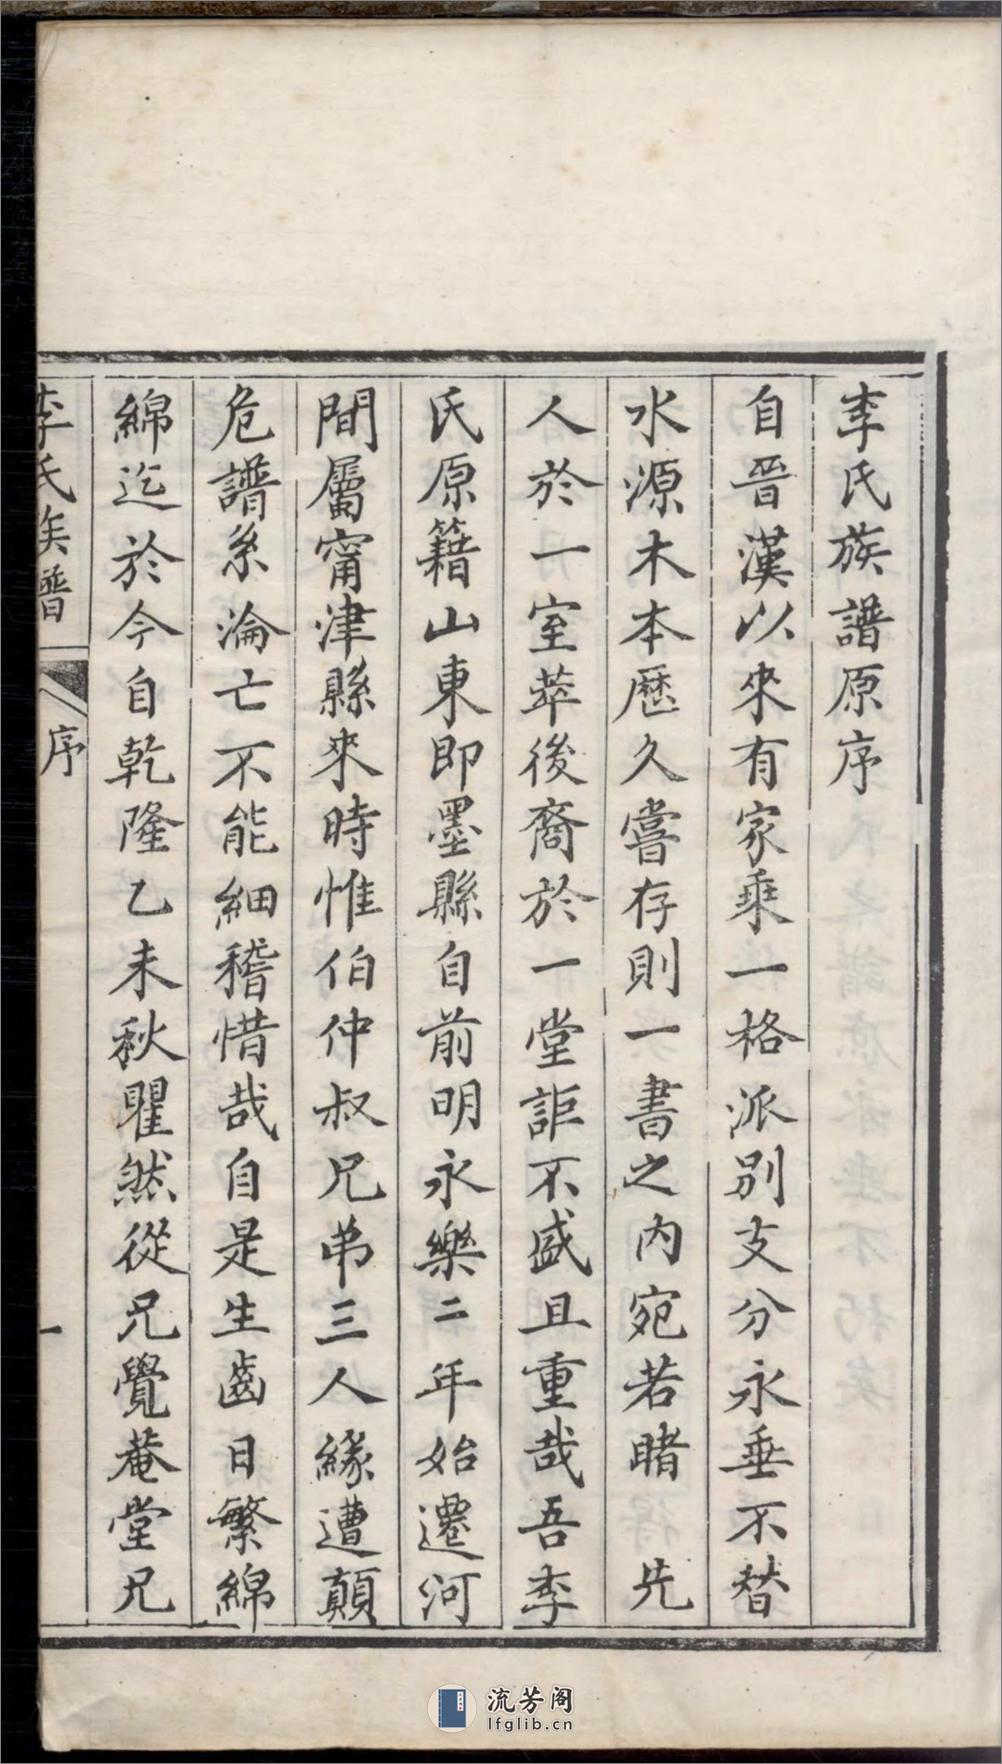 李氏族譜原序
自晉漢以來有家乘一格派別支分永垂不替
水源木本歷久嘗存則一書之內宛若睹先
人於一室萃後裔於一堂詎不盛且重哉吾李
氏原籍山東即墨縣自前明永樂二年始遷河
間屬甯津縣來時惟伯仲叔兄弟三人緣遭顛
危譜系淪亡不能細稽惜哉自是生齒日繁綿
綿迄於今自乾隆乙未秋瞿然從兄覺菴堂兄
李氏族譜 序 一
流芳阁
lfglib.cn